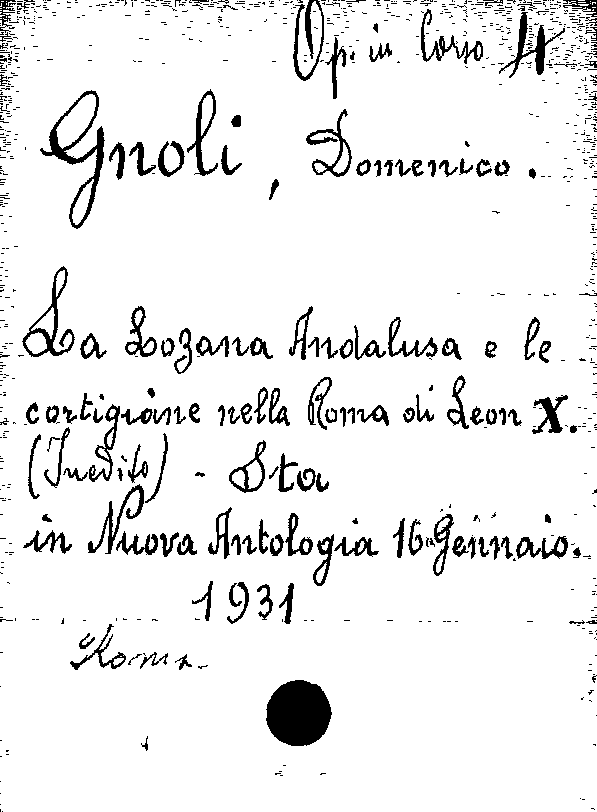 Op. in Corso 4
Gnoli, Domenico.
La Lozana Andalusa e le
cortigiane nella Roma di Leon X.
(Inedito) - Sta
in Nuova Antologia 16 Gennaio.
1931
Roma.